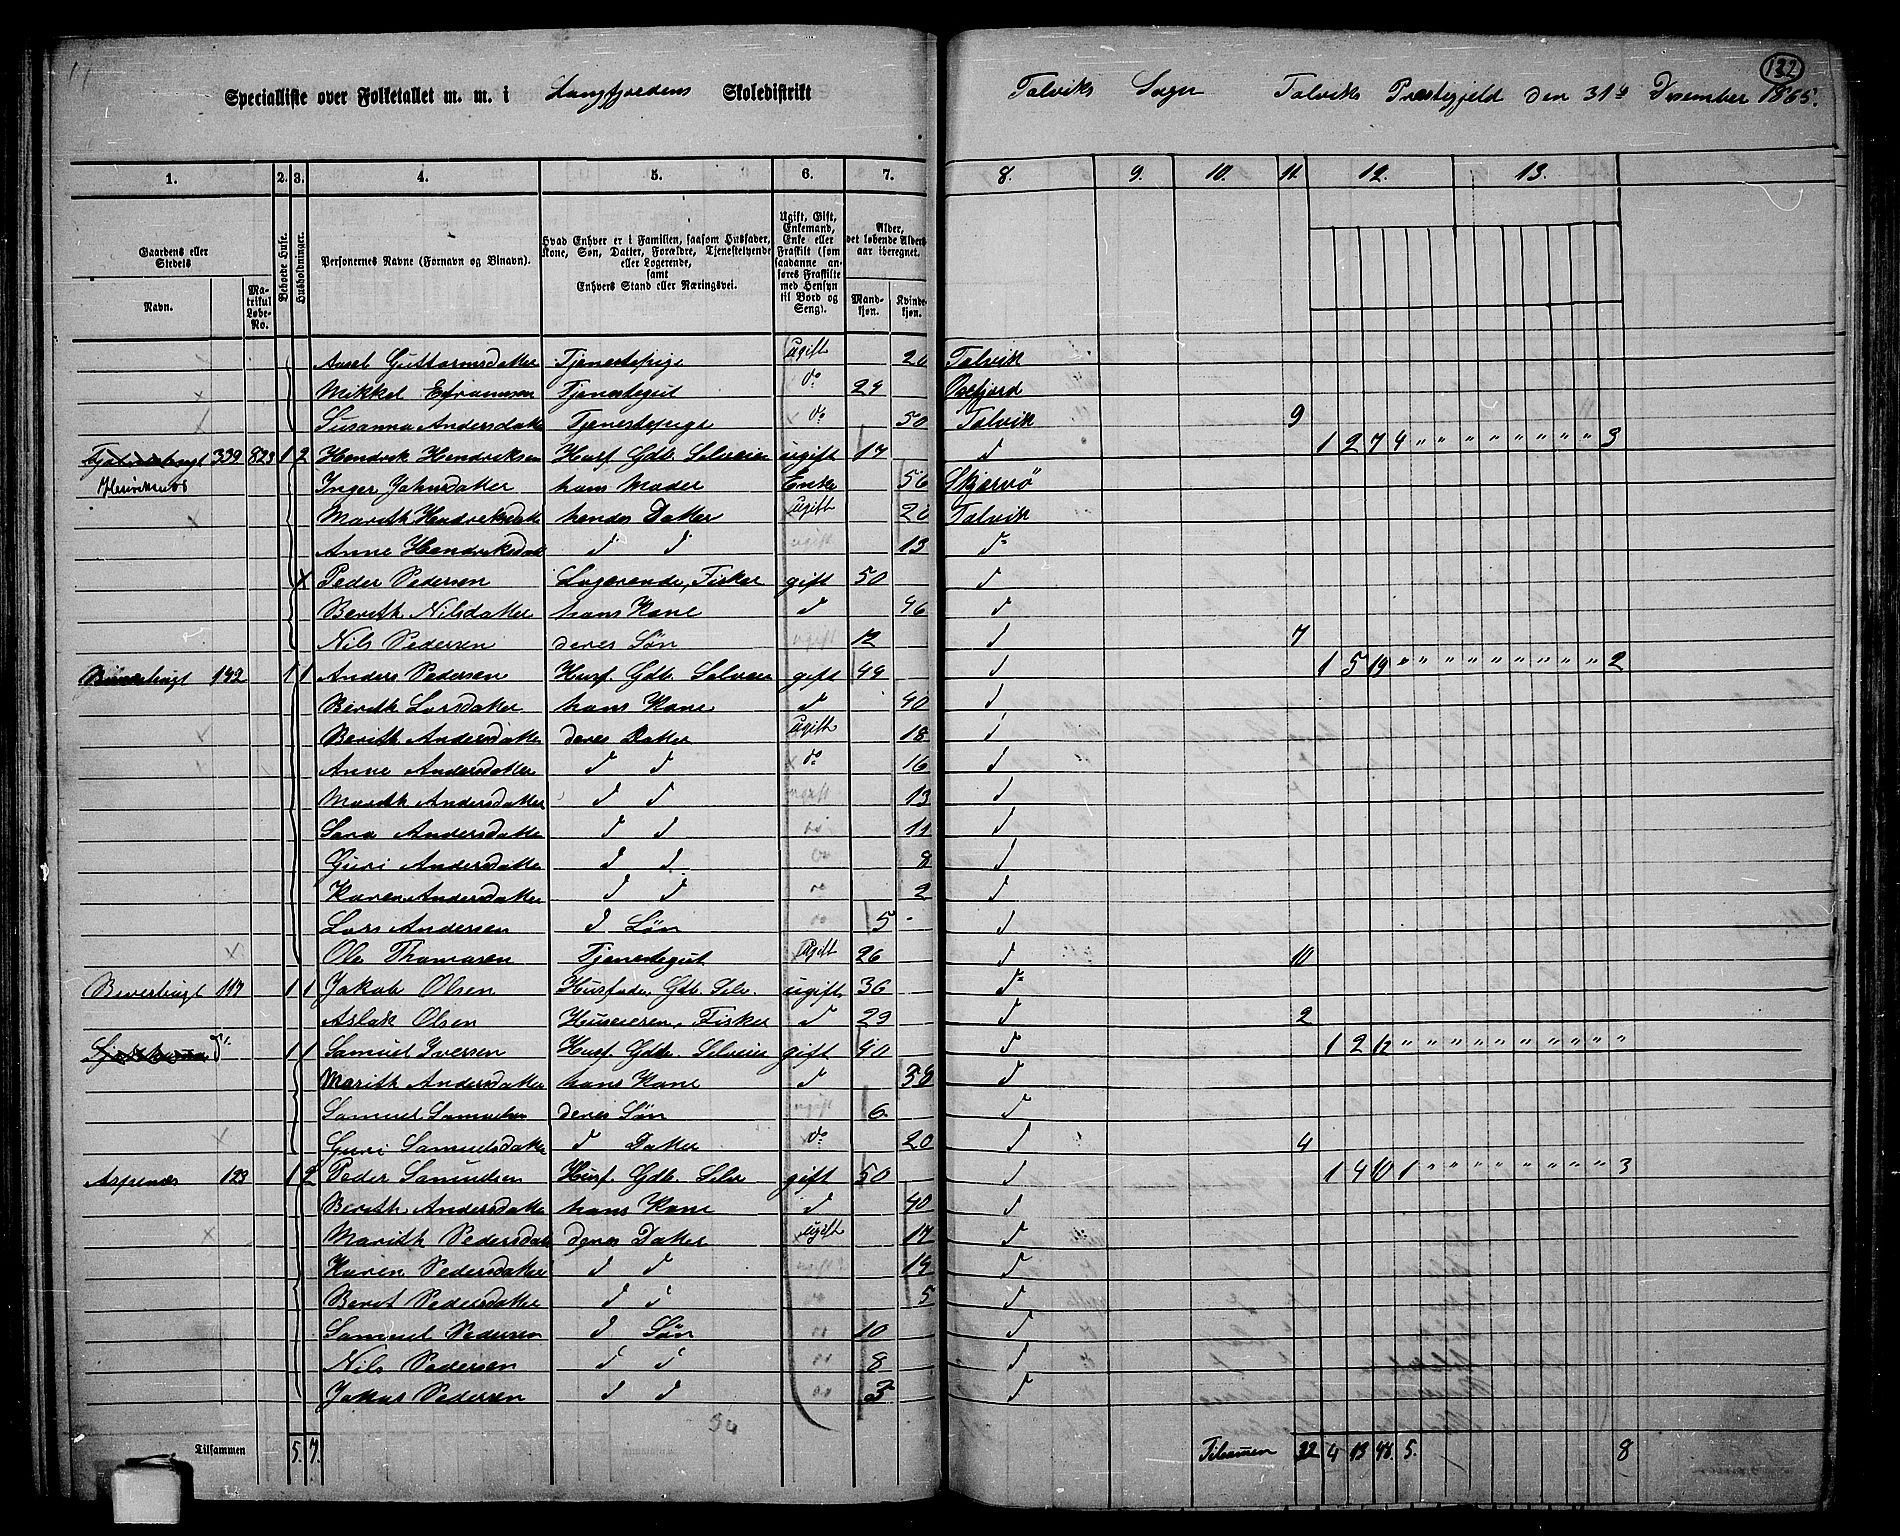 Specialliste over Folketallet m. m. i Langfjordens Skoledistrikt Talviks Sogn Talviks Præstegjeld den 31te Desember 1865.
132
1. 2. 3. 4. 5. 6. 7. 8. 9. 10. 11. 12. 13.
Gaardens eller Stedets
Navn.
Matrikul Løbe-No.
Beboede Huse.
Husholdninger.
Personernes Navne (Fornavn og Binavn).
Hvad Enhver er i Familien, saasom Husfader, Kone, Søn, Datter, Forældre, Tjenestetyende eller Logerende, samt Enhvers Stand eller Næringsvei.
Ugift, Gift, Enkemand, Enke eller Fraskilt (som saadanne anføres Fraskilte med Hensyn til Bord og Seng).
Alder, det løbende Alders-aar iberegnet.
Mandkjøn.
Kvindekjøn.
Guttormsdatter Tjenestepige ugift 20 Talvik
Mikkel Efraimsen Tjenestegut do 24 Oxfjord
Susanna Andersdatter Tjenestepige do 50 Talvik 9
339 823 1 2 Hendrik Hendriksen Husf. Gdb. Selveier ugift 17 d 1 2 7 4 " " " " " " " " " 3
Inger Johnsdatter hans Moder Enke 56 Skjervö
Marith Hendriksdatter hendes Datter ugift 20 Talvik
Anne Hendriksdat d d ugift 13 d
x Peder Pedersen Logerende, Fisker gift 50 d
Berith Nilsdatter hans Kone d 46 d
Nils Pedersen deres Søn ugift 12 d 7
142 1 1 Anders Pedersen Husf. Gdb. Selveier gift 44 d 1 5 19 " " " " " " " " " " 2
Berith Larsdatter hans Kone d 40 d
Berith Andersdatter deres Datter ugift 18 d
Anne Andersdatter d d do 16 d
Marith Andersdatter d d ugift 13 d
Sara Andersdatter d d do 11 d
Guri Andersdatter d d do 8 d
Karen Andersdatter d d do 2 d
Lars Andersen d Søn do 5 d
Ole Thomasen Tjenestegut ugift 26 d 10
Beverbugt 117 1 1 Jakob Olsen Husfader Gdb. Selv. ugift 36 d
Aslak Olsen Huseieren, Fisker d 29 d 2
1 1 Samuel Iversen Husf. Gdb. Selveier gift 40 d 1 2 12 " " " " " " " " " " "
Marith Andersdatter hans Kone d 38 d
Samuel Samuelsen deres Søn ugift 6 d
Guri Samuelsdatter d Datter do 20 d 4
Aspenæs 123 1 2 Peder Samuelsen Husf. Gdb. Selv gift 50 d 1 4 10 1 " " " " " " " " " 3
Berith Andersdatter hans Kone d 40 d
Marith Pedersdatter deres Datter ugift 17 d
Karen Pedersdatter d d ugift 14 d
Berit Pedersdatter d d do 5 d
Samuel Pedersen d Søn do 10 d
Nils Pedersen d d do 8 d
Pedersen d d do 3 d
34
Tilsammen 5. 7. Tilsammen 32 4 13 48. 5. 8